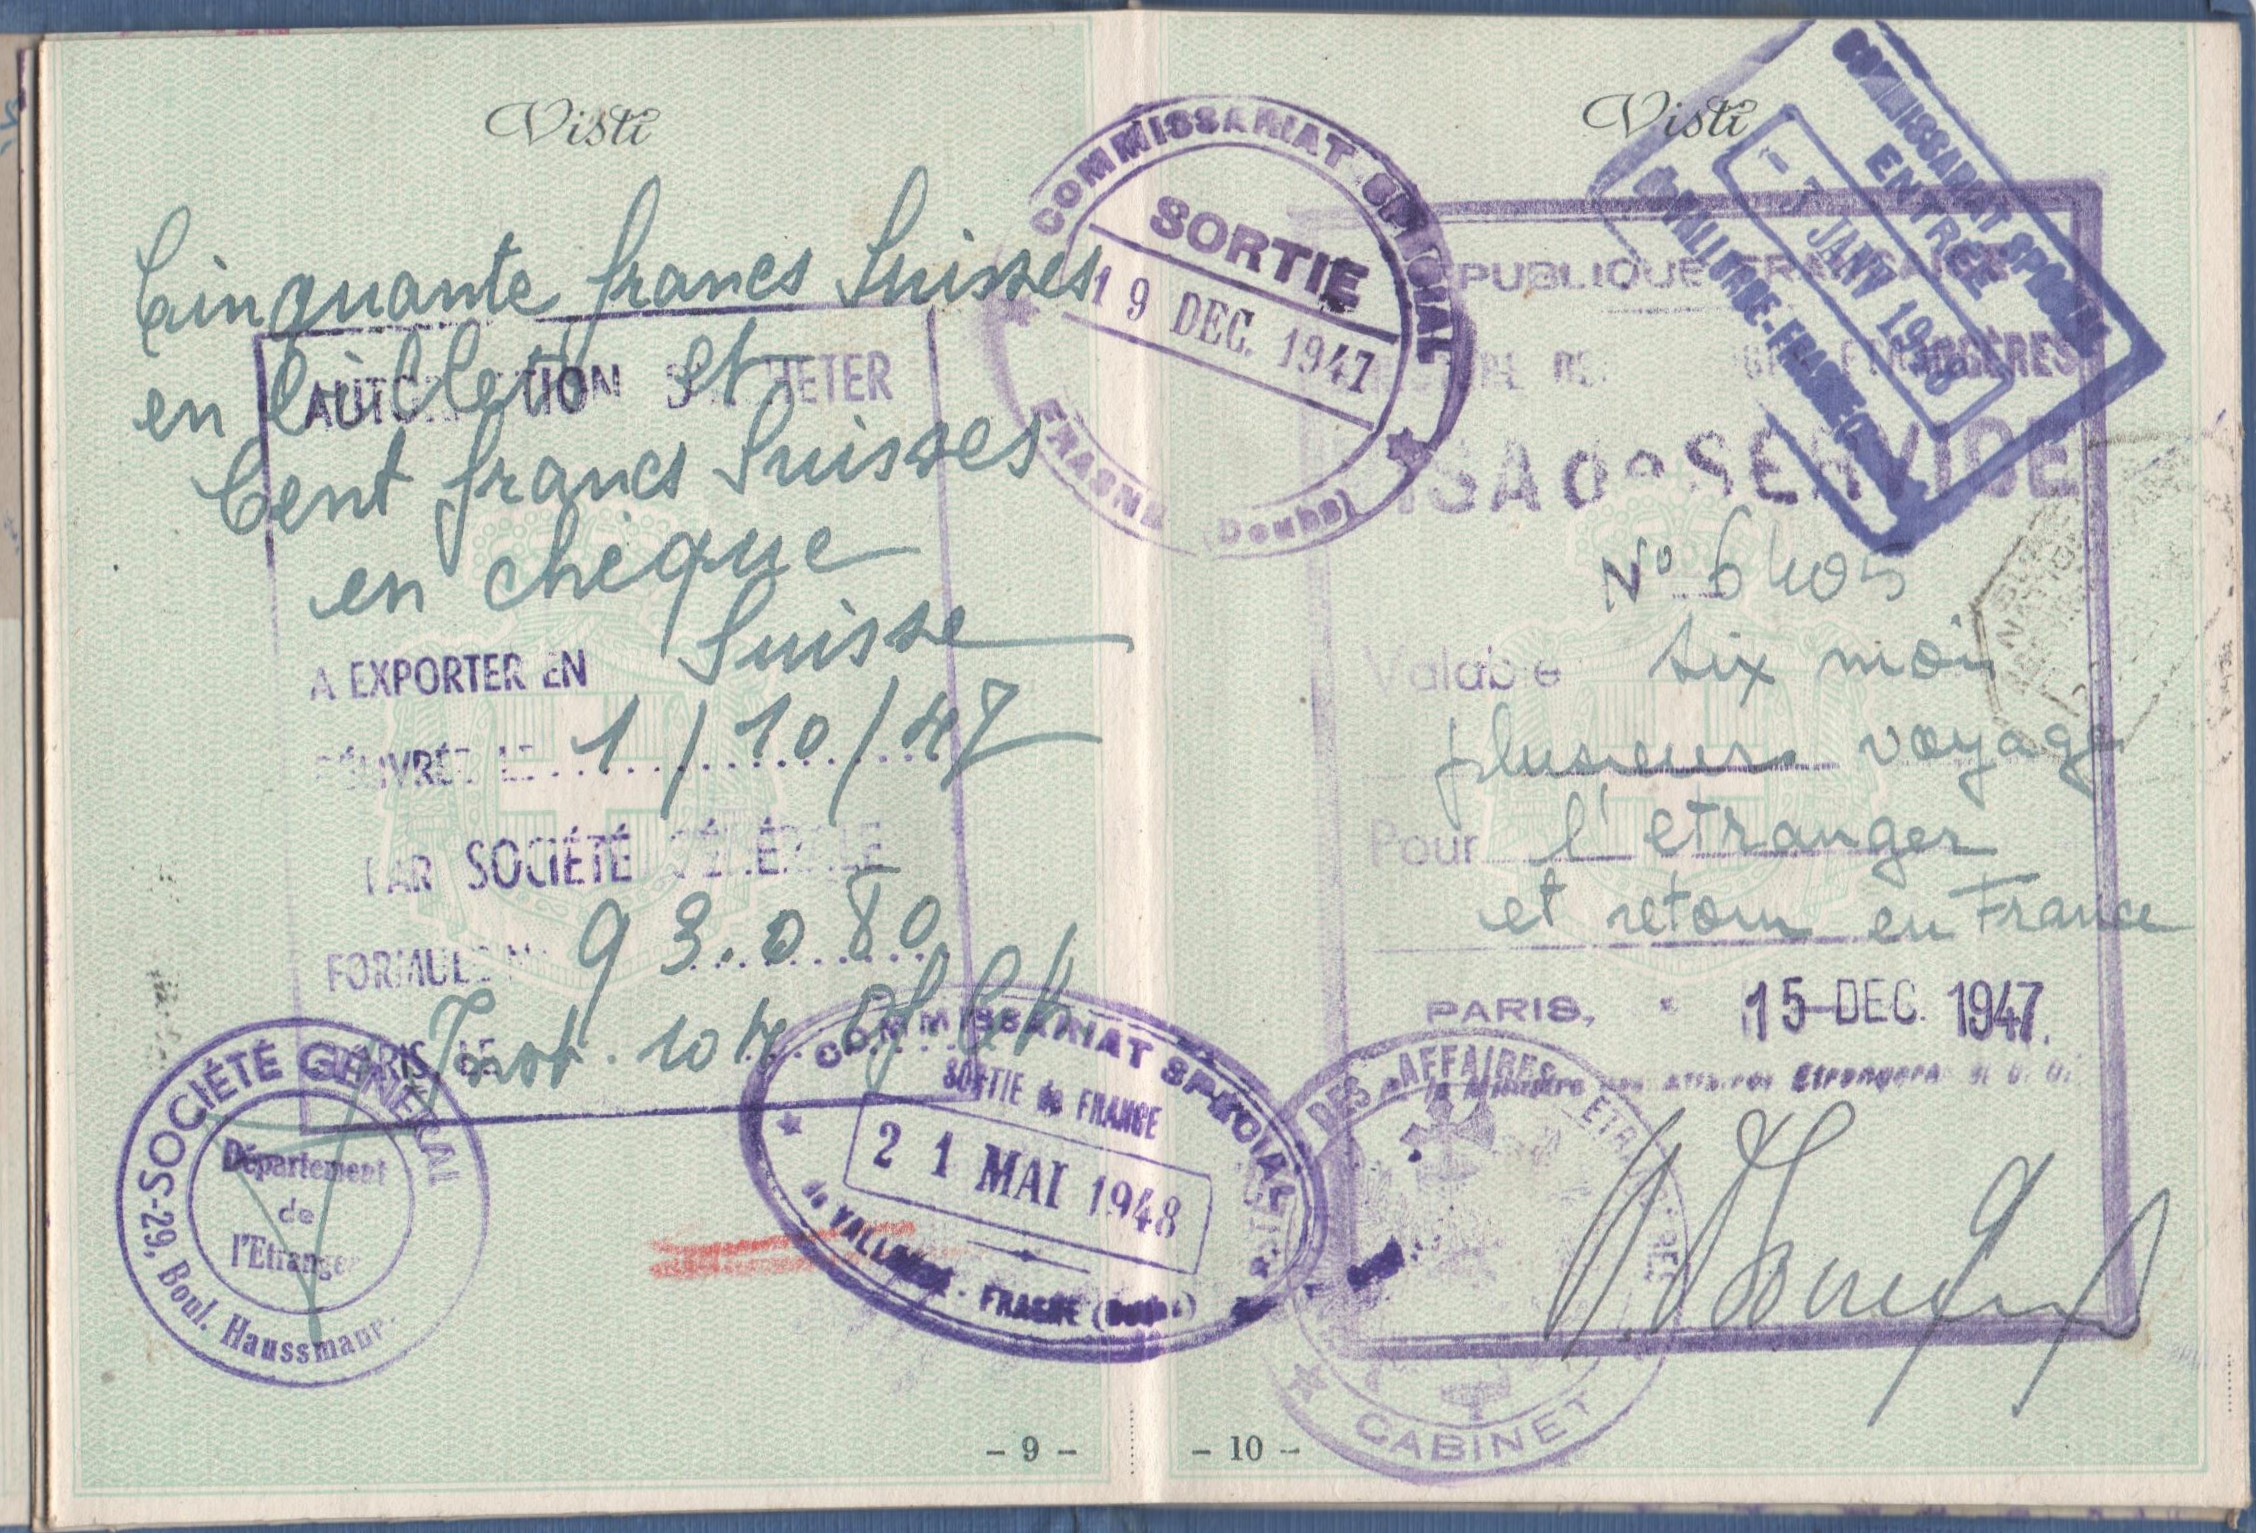 Visti
Cinquante francs Suisses
en billets et
AUTORISATION D'ACHETER
Cent francs Suisses
en chèque
A EXPORTER EN Suisse
DÉLIVRÉE LE 1/10/47
PAR SOCIÉTÉ GÉNÉRALE
FORMULE N° 93.080
Inst. 104
PARIS, LE
SOCIÉTÉ GÉNÉRAL
Département
de
l'Etranger
-29, Boul. Haussmann-
COMMISSARIAT SPECIAL
SORTIE de FRANCE
21 MAI 1948
de VALLORBE - FRASNE (Doubs)
- 9 -
COMMISSARIAT SPECIAL
SORTIE
19 DEC. 1947
FRASNE (Doubs)
Visti
COMMISSARIAT SPECIAL
ENTRÉE
- 7 JANV 1948
de VALLORBE-FRASNE (
REPUBLIQUE FRANÇAISE
MINISTERE DES AFFAIRES ETRANGÈRES
VISA de SERVICE
N° 6405
Valable six mois
plusieurs voyages
Pour l'etranger
et retour en France
PARIS, 15 DEC. 1947.
le Ministre des Affaires Etrangères
DES AFFAIRES ETRANGÈRES
CABINET
- 10 -